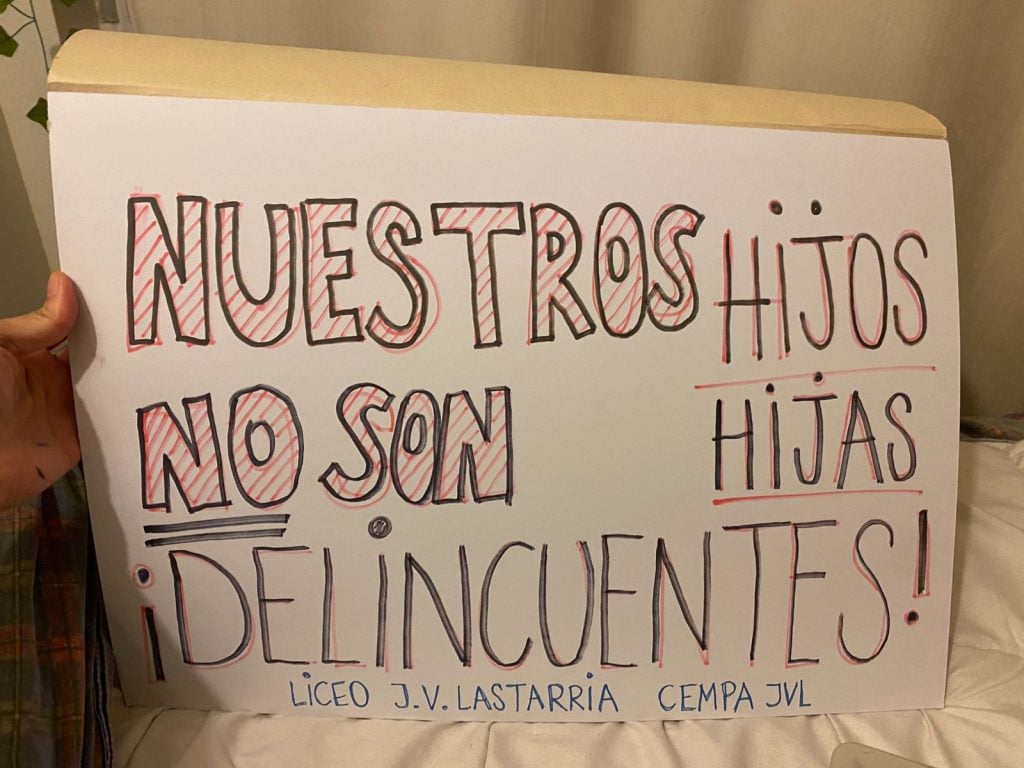 NUESTROS HIJOS
NO SON HIJAS
¡DELINCUENTES!
LICEO J.V. LASTARRIA CEMPA JVL